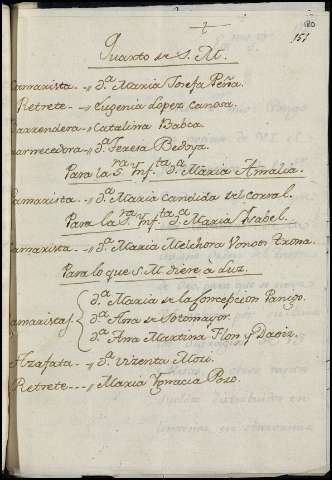 180
151
Quarto de S. M.
Camarista - D.ª Maria Josefa Peña.
Retrete - Eugenia Lopez Canosa.
Barrendera - Catalina
D.ª Teresa Bedoya.
Para la S.ra Inf.ta D.ª Maria Amalia.
Camarista - D.ª Maria Candida del Corral.
Para la S.ra Inf.ta D.ª Maria Ysabel.
Camarista - D.ª Maria Melchora
Para lo que S. M. diere à luz.
D.ª Maria de la Concepcion
Camaristas D.ª Ana de Sotomayor
D.ª Ana Martina Flon y Daoiz.
Azafata - D.ª Vizenta
Retrete - Maria Ygnacia Pozo.